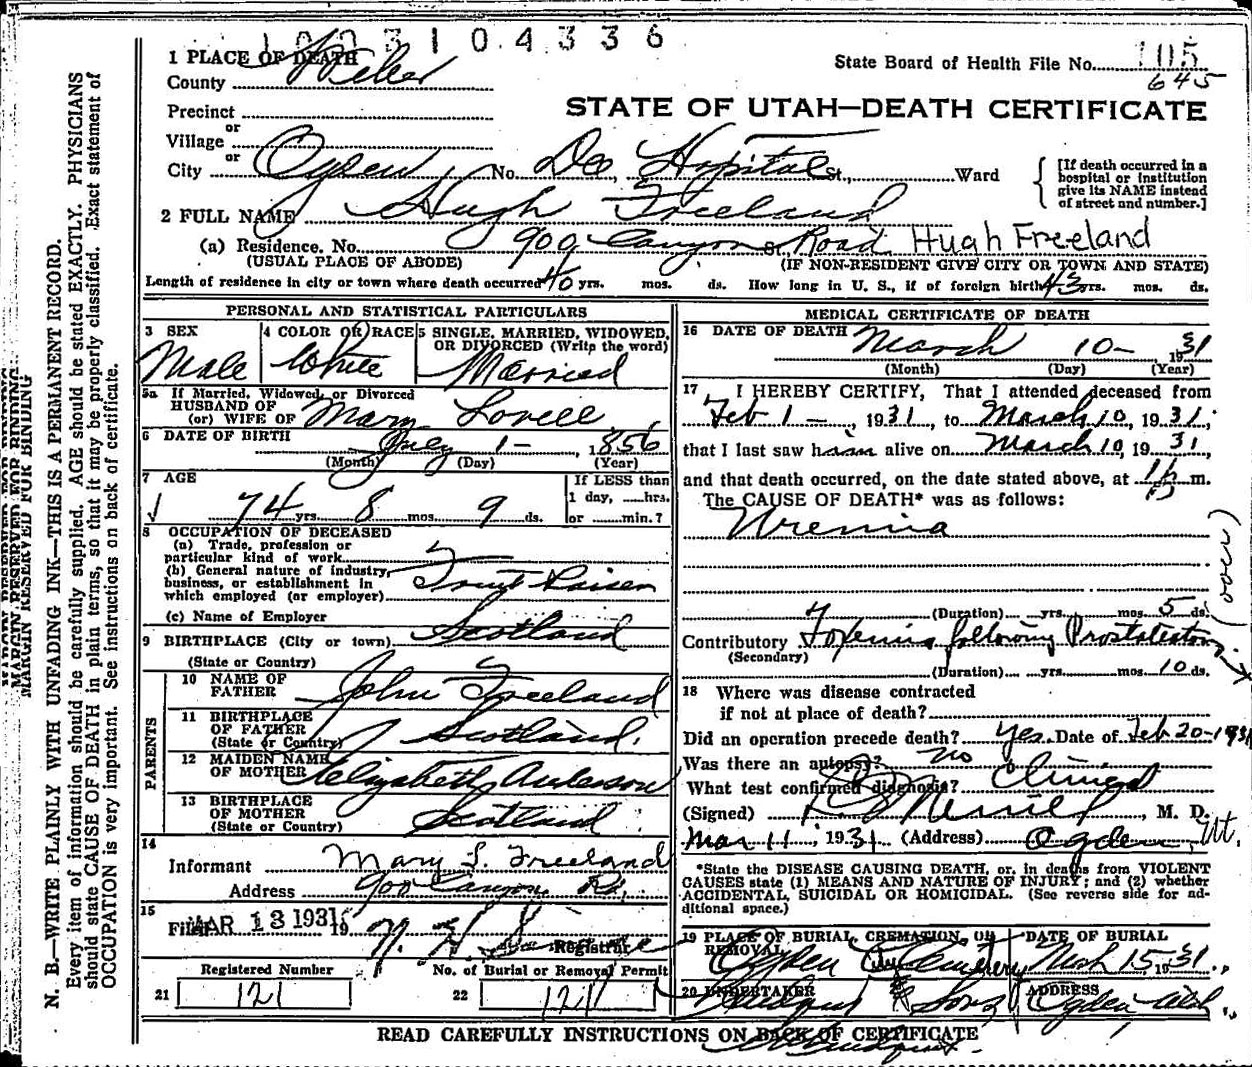 1003104336
1 PLACE OF DEATH
County Weber
State Board of Health File No. 105
645
Precinct
STATE OF UTAH—DEATH CERTIFICATE
or
Village
or
City Ogden No. Dee Hospital St., Ward
[If death occurred in a
hospital or institution
give its NAME instead
of street and number.]
2 FULL NAME Hugh Freeland
(a) Residence. No. 900 Canyon St., Road Hugh Freeland
(USUAL PLACE OF ABODE) (IF NON-RESIDENT GIVE CITY OR TOWN AND STATE)
Length of residence in city or town where death occurred 40 yrs. mos. ds. How long in U. S., if of foreign birth 43 yrs. mos. ds.
PERSONAL AND STATISTICAL PARTICULARS
3 SEX
Male
4 COLOR OR RACE
White
5 SINGLE, MARRIED, WIDOWED,
OR DIVORCED (Write the word)
Married
5a If Married, Widowed, or Divorced
HUSBAND OF
(or) WIFE OF Mary Lovell
6 DATE OF BIRTH July 1 - 1856
(Month) (Day) (Year)
7 AGE
74 yrs. 8 mos. 9 ds.
If LESS than
1 day, hrs.
or min.?
8 OCCUPATION OF DECEASED
(a) Trade, profession or
particular kind of work
(b) General nature of industry,
business, or establishment in
which employed (or employer) Fruit Raiser
(c) Name of Employer
9 BIRTHPLACE (City or town) Scotland
(State or Country)
PARENTS
10 NAME OF
FATHER John Freeland
11 BIRTHPLACE
OF FATHER
(State or Country) Scotland.
12 MAIDEN NAME
OF MOTHER Elizabeth Anderson
13 BIRTHPLACE
OF MOTHER
(State or Country) Scotland
14
Informant Mary L. Freeland
Address 900 Canyon Rd.
15
Filed MAR 13 1931 19
Registrar
Registered Number
21 121
No. of Burial or Removal Permit
22 121
MEDICAL CERTIFICATE OF DEATH
16 DATE OF DEATH March 10- 1931
(Month) (Day) (Year)
17 I HEREBY CERTIFY, That I attended deceased from
Feb 1 -, 1931, to March 10, 1931,
that I last saw him alive on March 10, 1931,
and that death occurred, on the date stated above, at m.
The CAUSE OF DEATH* was as follows:
Uremia
(Duration) yrs. mos. 5 ds.
Contributory Toxemia following Prostatectomy
(Secondary)
(over)
(Duration) yrs. mos. 10 ds.
18 Where was disease contracted
if not at place of death?
Did an operation precede death? Yes. Date of Feb 20-1931
Was there an autopsy? no
What test confirmed diagnosis? Clinical
(Signed) Merrill, M. D.
Mar 11, 1931 (Address) Ogden, Ut.
*State the DISEASE CAUSING DEATH, or, in deaths from VIOLENT
CAUSES state (1) MEANS AND NATURE OF INJURY; and (2) whether
ACCIDENTAL, SUICIDAL OR HOMICIDAL. (See reverse side for ad-
ditional space.)
19 PLACE OF BURIAL, CREMATION, OR
REMOVAL
Ogden City Cemetery
DATE OF BURIAL
Mch 15 1931
20 UNDERTAKER
& Sons
ADDRESS
Ogden Utah
READ CAREFULLY INSTRUCTIONS ON BACK OF CERTIFICATE
MARGIN RESERVED FOR BINDING
N. B.—WRITE PLAINLY WITH UNFADING INK—THIS IS A PERMANENT RECORD.
Every item of information should be carefully supplied. AGE should be stated EXACTLY. PHYSICIANS
should state CAUSE OF DEATH in plain terms, so that it may be properly classified. Exact statement of
OCCUPATION is very important. See instructions on back of certificate.